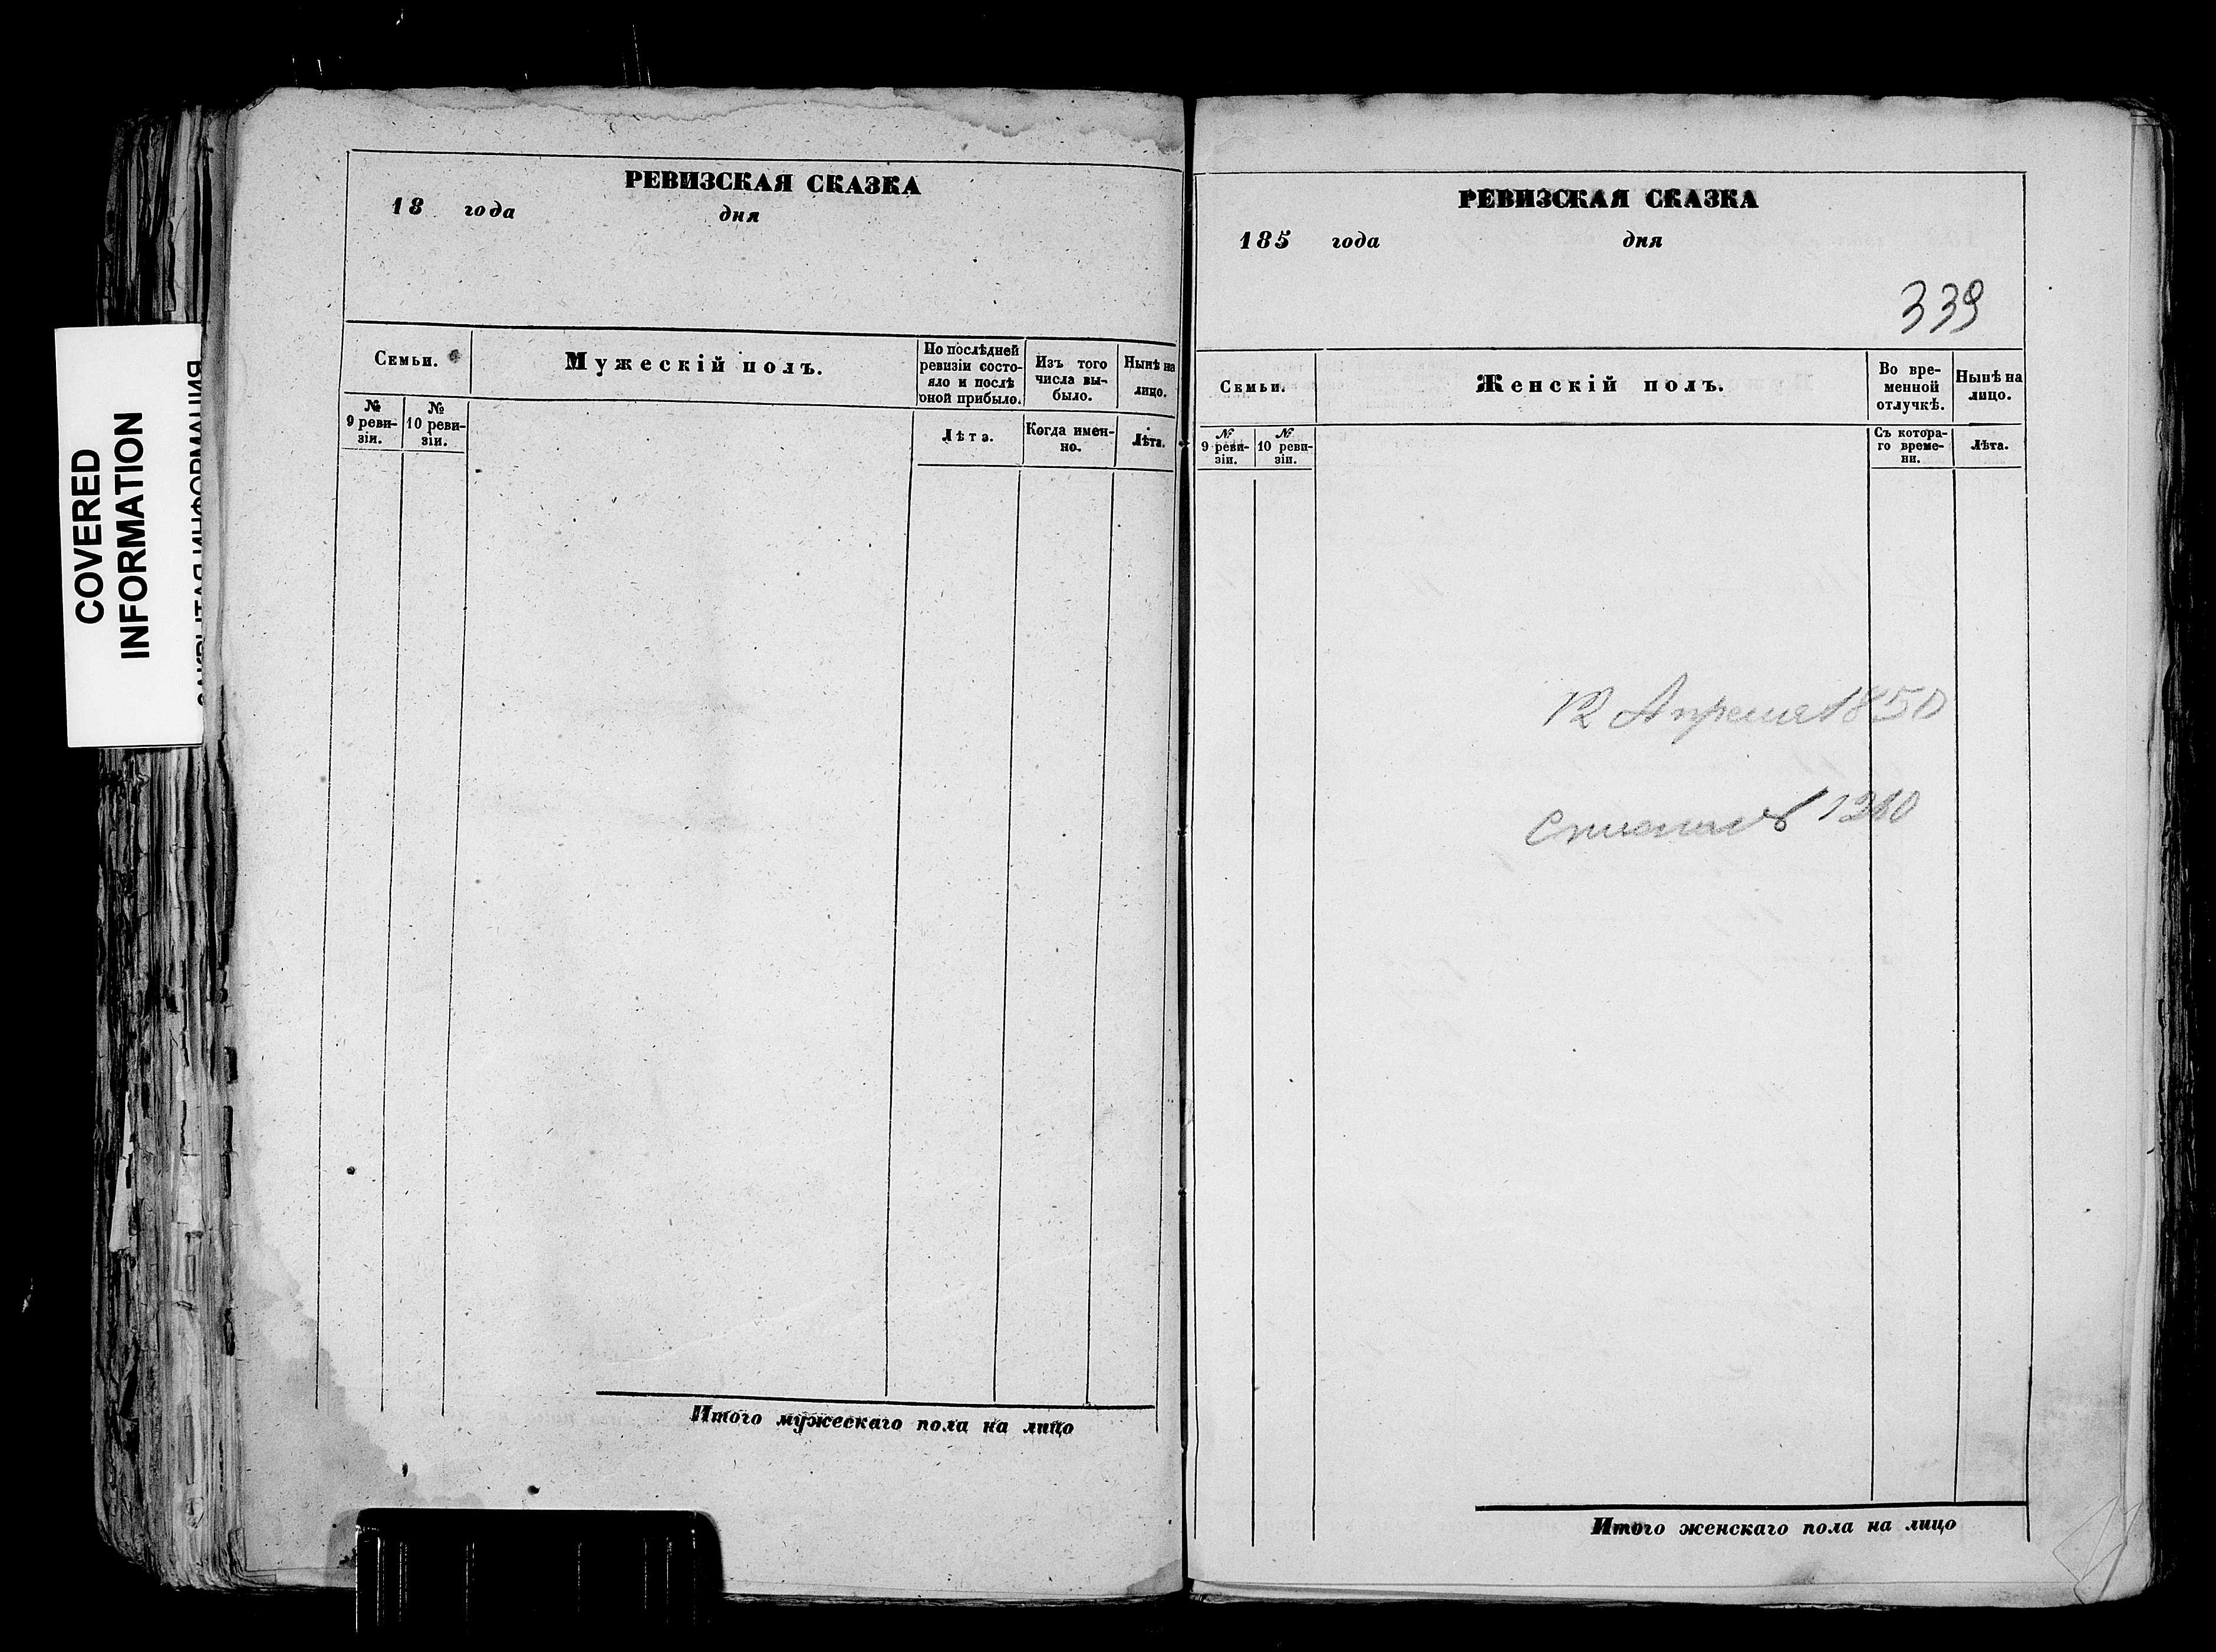 COVERED
INFORMATION
РЕВИЗСКАЯ СКАЗКА
18 года дня
Семьи.
Мужескій полъ.
По послѣдней
ревизіи состо-
яло и послѣ
оной прибыло.
Изъ того
числа вы-
было.
Нынѣ на
лицо.
№
9 реви-
зіи.
№
10 реви-
зіи.
Лѣта.
Когда имен-
но.
Лѣта.
Итого мужескаго пола на лицо
РЕВИЗСКАЯ СКАЗКА
185 года дня
339
Семьи.
Женскій полъ.
Во вре-
менной
отлучкѣ.
Нынѣ на
лицо.
№
9 реви-
зіи.
№
10 реви-
зіи.
Съ котора-
го време-
ни.
Лѣта.
12 Апреля 1850
Итого женскаго пола на лицо